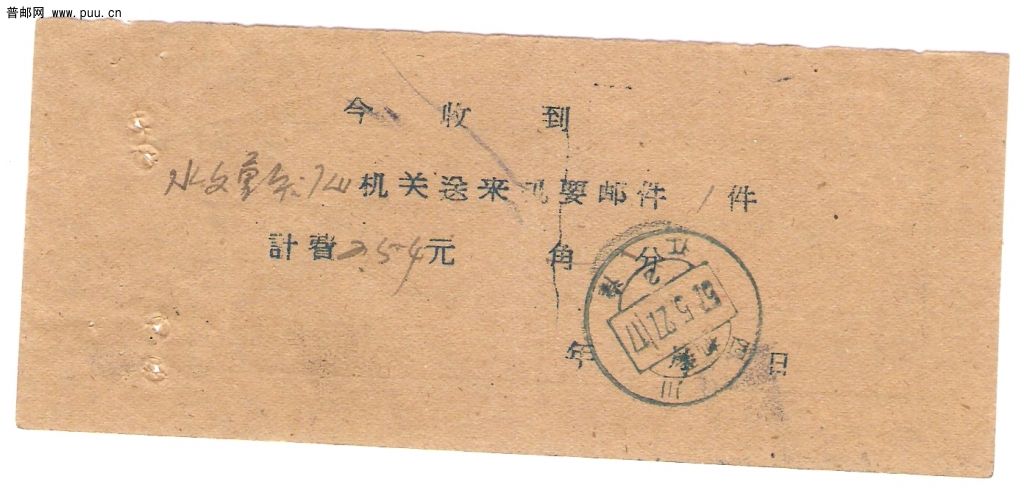 普邮网 www.puu.cn
今 收 到
机关送来 要邮件 1 件
計費 2.54 元 角 分
年 日
57.5.27.17
四川